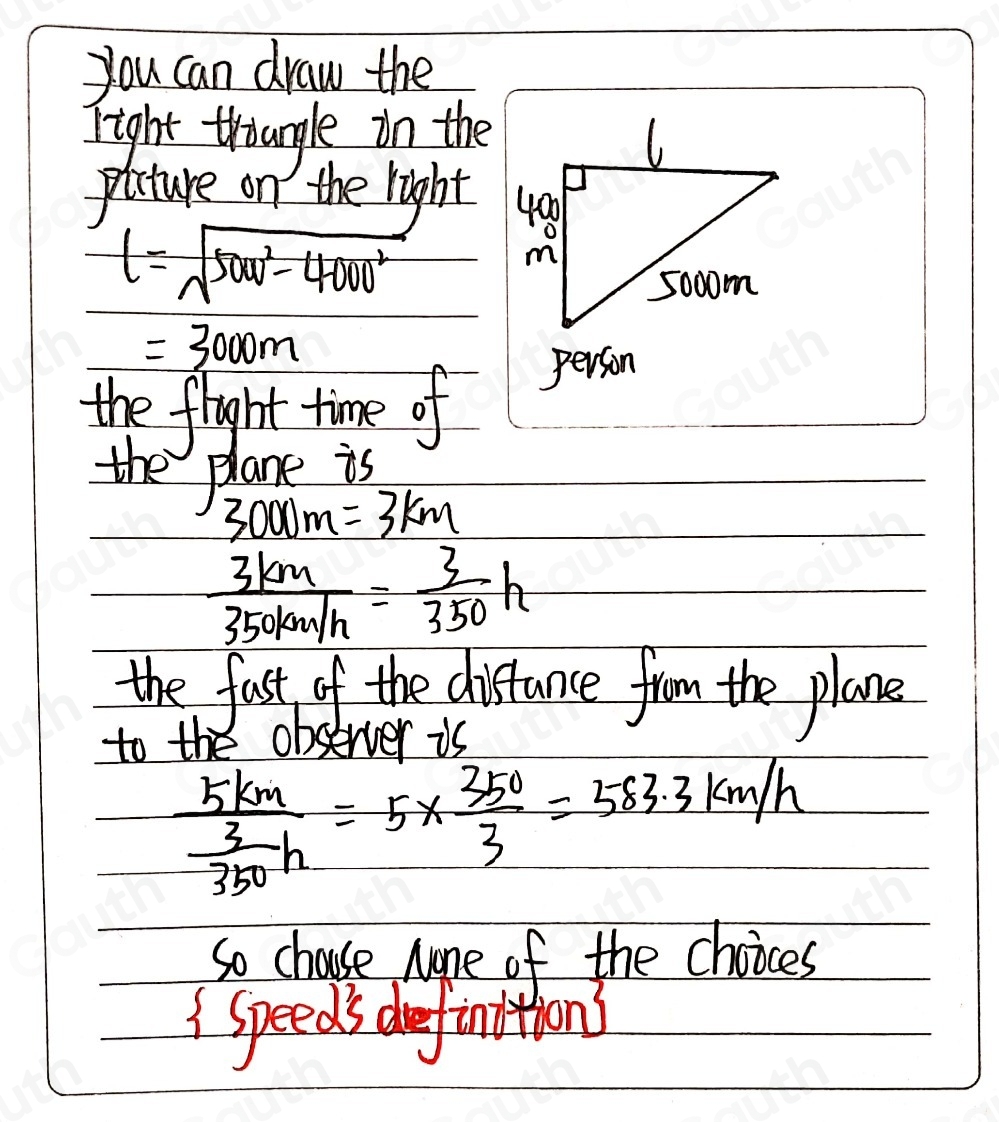 you can draw the
right triangle in the
picture on the right
l = √5000² - 4000²
= 3000m
the flight time of
the plane is
3000m = 3km
3km/350km/h = 3/350 h
the fast of the distance from the plane
to the observer is
5km/(3/350 h) = 5 × 350/3 = 583.3 km/h
so choose None of the choices
{ speed's definition }
l
4000
m
5000m
person
Gauth